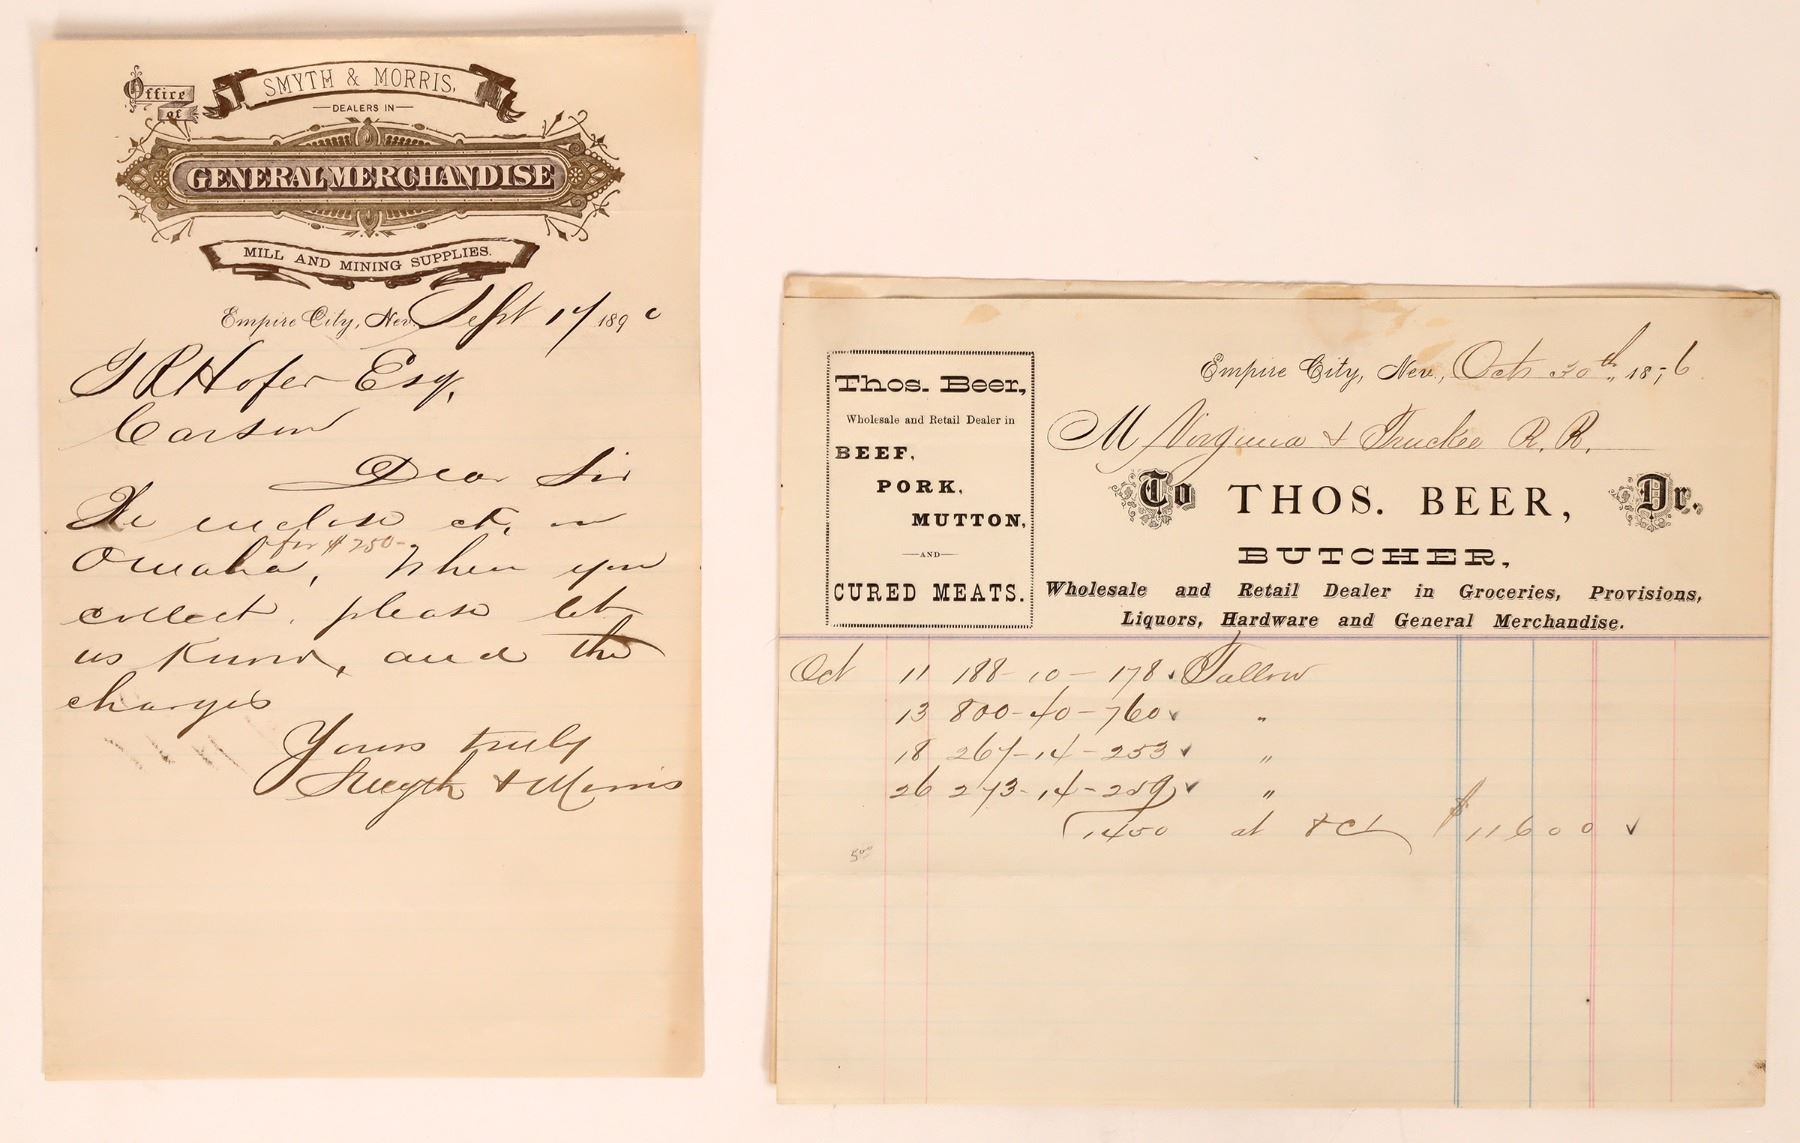 Office of
SMYTH & MORRIS,
DEALERS IN
GENERAL MERCHANDISE
MILL AND MINING SUPPLIES.
Empire City, Nev. Sept 17 1890
T R Hofer Esq,
Carson
Dear Sir
We enclose ck, on
for $250-
Omaha, When you
collect, please let
us know, and the
charges
Yours truly
Smyth & Morris
Thos. Beer,
Wholesale and Retail Dealer in
BEEF,
PORK,
MUTTON,
AND
CURED MEATS.
Empire City, Nev., Oct 30th, 1876
M Virginia & Truckee R. R.
To THOS. BEER, Dr.
BUTCHER,
Wholesale and Retail Dealer in Groceries, Provisions,
Liquors, Hardware and General Merchandise.
Oct 11 188-10-178 Tallow
13 800-40-760 "
18 267-14-253 "
26 273-14-259 "
1450 at 8 Ct $116 00